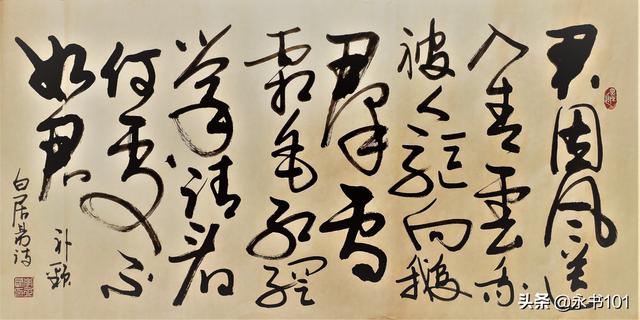 君因风送
入青云我
被人驱向鸭
群雪
霜毛红网
掌请看
何处不
如君
补颈
白居易诗
头条 @永书101